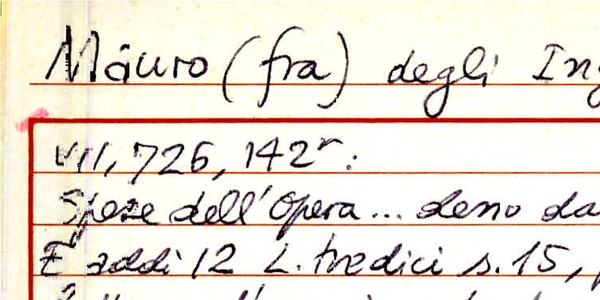 Mauro (fra) degli Ing
VII, 726, 142r:
Spese dell'Opera... deno da
E addì 12 L. tredici s. 15,